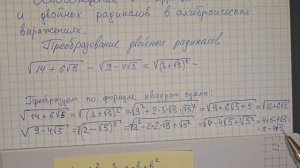 и двойных радикалов в алгебраических
выражениях.
Преобразование двойных радикалов
√(14 + 6√5) − √(9 − 4√5) = √((3 + √5)²) −
Преобразуем по формуле квадрат суммы:
√(14 + 6√5) = √((3 + √5)²) = √(3² + 2·3·√5 + √5²) = √(9 + 6√5 + 5) = √(14 + 6√5)
√(9 − 4√5) = √((2 − √5)²) = √(2² − 2·2·√5 + √5²) = √(4 − 4√5 + √5²) = 4 + 5 − 4√5 =
= 9 − 4√5